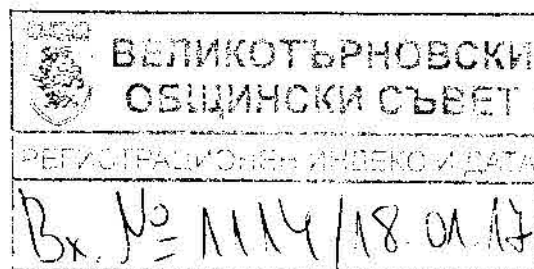 ВЕЛИКОТЪРНОВСКИ
ОБЩИНСКИ СЪВЕТ
РЕГИСТРАЦИОНЕН ИНДЕКС И ДАТА
Вх. № 1114/18.01.17